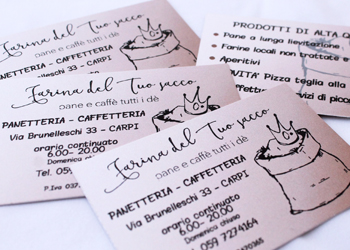 Farina del Tuo sacco
pane e caffè tutti i dè
PANETTERIA - CAFFETTERIA
Via Brunelleschi 33 - CARPI
orario continuato
6.00- 20.00
Domenica
Tel. 059
P.Iva
PRODOTTI DI ALTA
Pane a lunga lievitazione
Farine locali non trattate e
Aperitivi
Pizza teglia alla
di picco
Farina del Tuo sacco
pane e caffè tutti i dè
PANETTERIA - CAFFETTERIA
Via Brunelleschi 33 - CARPI
orario continuato
6.00- 20.00
Domenica
Tel. 059
Farina del Tuo sacco
pane e caffè tutti i dè
PANETTERIA - CAFFETTERIA
Via Brunelleschi 33 - CARPI
orario continuato
6.00- 20.00
Domenica chiuso
Tel. 059 7274164